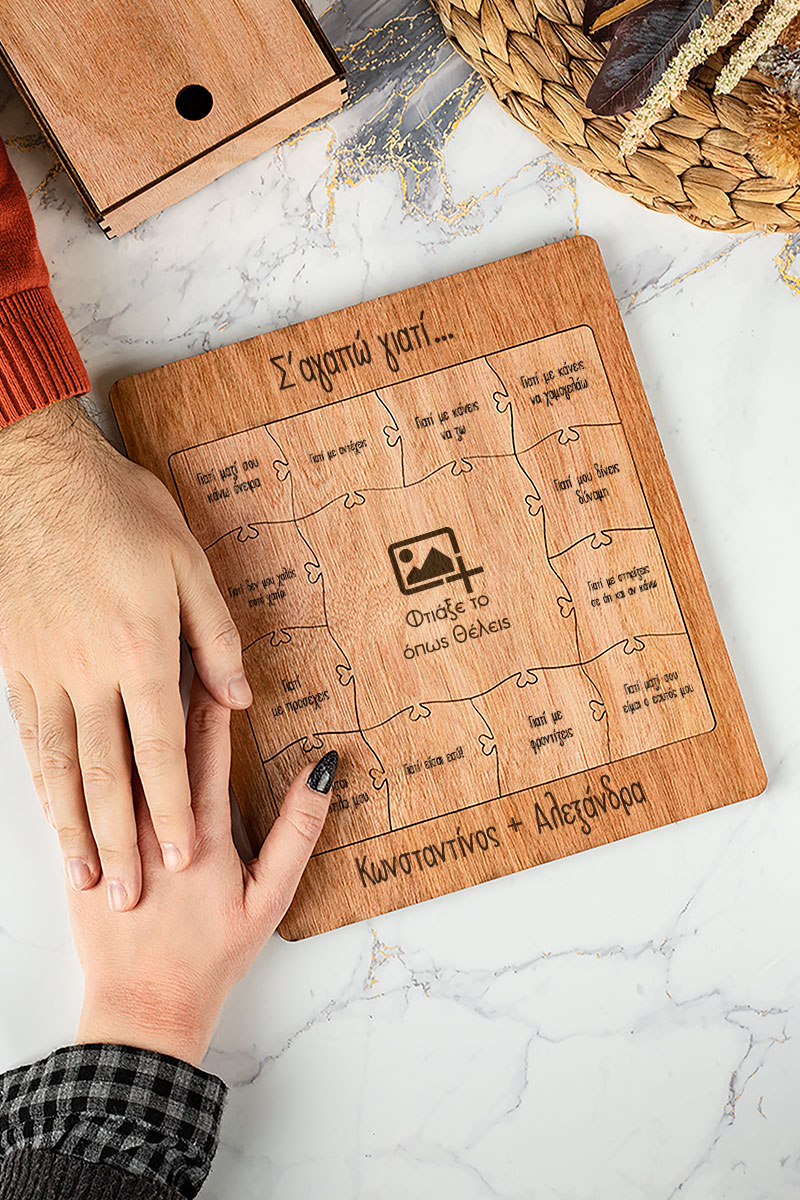 Σ' αγαπώ γιατί...
Γιατί μαζί σου
κάνω όνειρα
Γιατί με αντέχεις
Γιατί με κάνεις
να ζω
Γιατί με κάνεις
να χαμογελάω
Γιατί δεν μου χαλάς
ποτέ χατίρι
Γιατί μου δίνεις
δύναμη
Φτιάξε το
όπως θέλεις
Γιατί με στηρίζεις
σε ότι και αν κάνω
Γιατί
με προσέχεις
μου
Γιατί είσαι εσύ!
Γιατί με
φροντίζεις
Γιατί μαζί σου
είμαι ο εαυτός μου
Κωνσταντίνος + Αλεξάνδρα